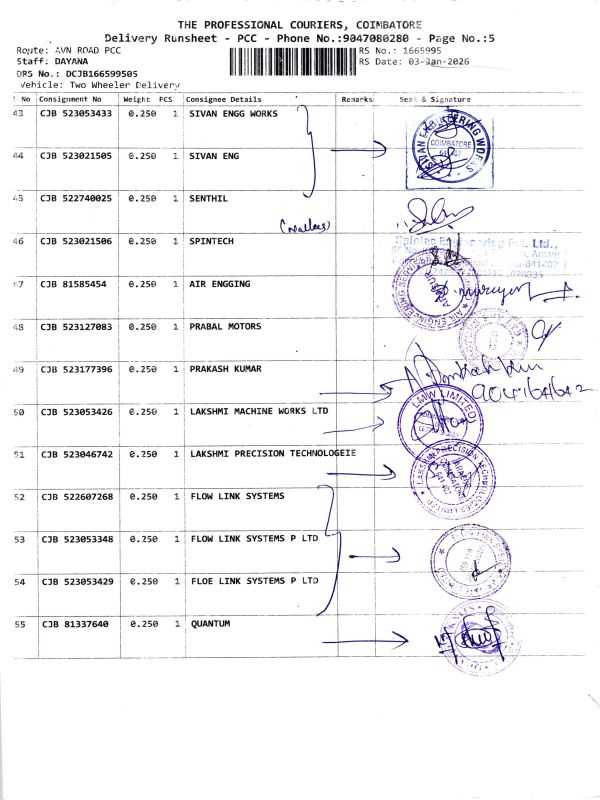 THE PROFESSIONAL COURIERS, COIMBATORE
Delivery Runsheet - PCC - Phone No.:9047080280 - Page No.:5
Route: AVN ROAD PCC
RS No.: 1665995
Staff: DAYANA
RS Date: 03-Jan-2026
DRS No.: DCJB166599505
Vehicle: Two Wheeler Delivery
No Consignment No Weight PCS Consignee Details Remarks Seal & Signature
43 CJB 523053433 0.250 1 SIVAN ENGG WORKS
COIMBATORE
44 CJB 523021505 0.250 1 SIVAN ENG
45 CJB 522740025 0.250 1 SENTHIL
46 CJB 523021506 0.250 1 SPINTECH
47 CJB 81585454 1 AIR ENGGING
48 CJB 523127083 0.250 1 PRABAL MOTORS
49 CJB 523177396 0.250 1 PRAKASH KUMAR
50 CJB 523053426 0.250 1 LAKSHMI MACHINE WORKS LTD
LMW LIMITED
51 CJB 523046742 0.250 1 LAKSHMI PRECISION TECHNOLOGEIE
LAKSHMI PRECISION TECHNOLOGIES LIMITED
52 CJB 522607268 0.250 1 FLOW LINK SYSTEMS
53 CJB 523053348 0.250 1 FLOW LINK SYSTEMS P LTD
54 CJB 523053429 0.250 1 FLOE LINK SYSTEMS P LTD
55 CJB 81337640 0.250 1 QUANTUM